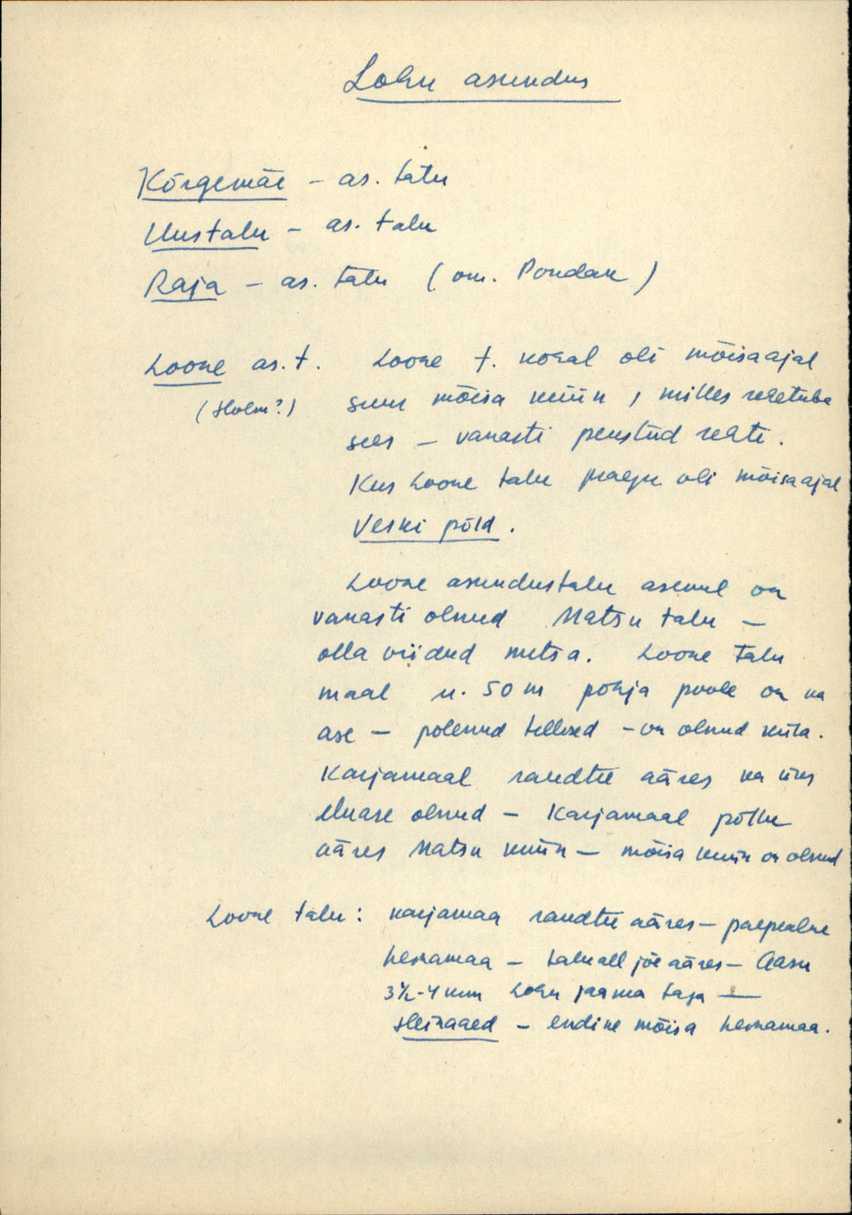 Lohu asundus
Kõrgemäe – as. talu
Uustalu – as. talu
Raja – as. talu (om. Pondak)
Loone as. t. Loone t. kohal oli mõisaajal
(Holm?) suur mõisa küün, milles rehetuba
sees – vanasti peustud rehti.
Kus Loone talu praegu oli mõisaajal
Veski põld.
Loone asundustalu asemel on
vanasti olnud Matsu talu –
olla viidud metsa. Loone talu
maal u. 50 m põhja poole on ka
ase – põlenud tellised – on olnud küla.
Karjamaal raudtee ääres ka üks
eluase olnud – Karjamaal põllu
ääres Matsu küün – mõisa küün on olnud
Loone talu: karjamaa raudtee ääres – paepealne
heinamaa – talu all jõe ääres – Aasu
3½-4 km Lohu jaama taga —
Heinaaed – endine mõisa heinamaa.